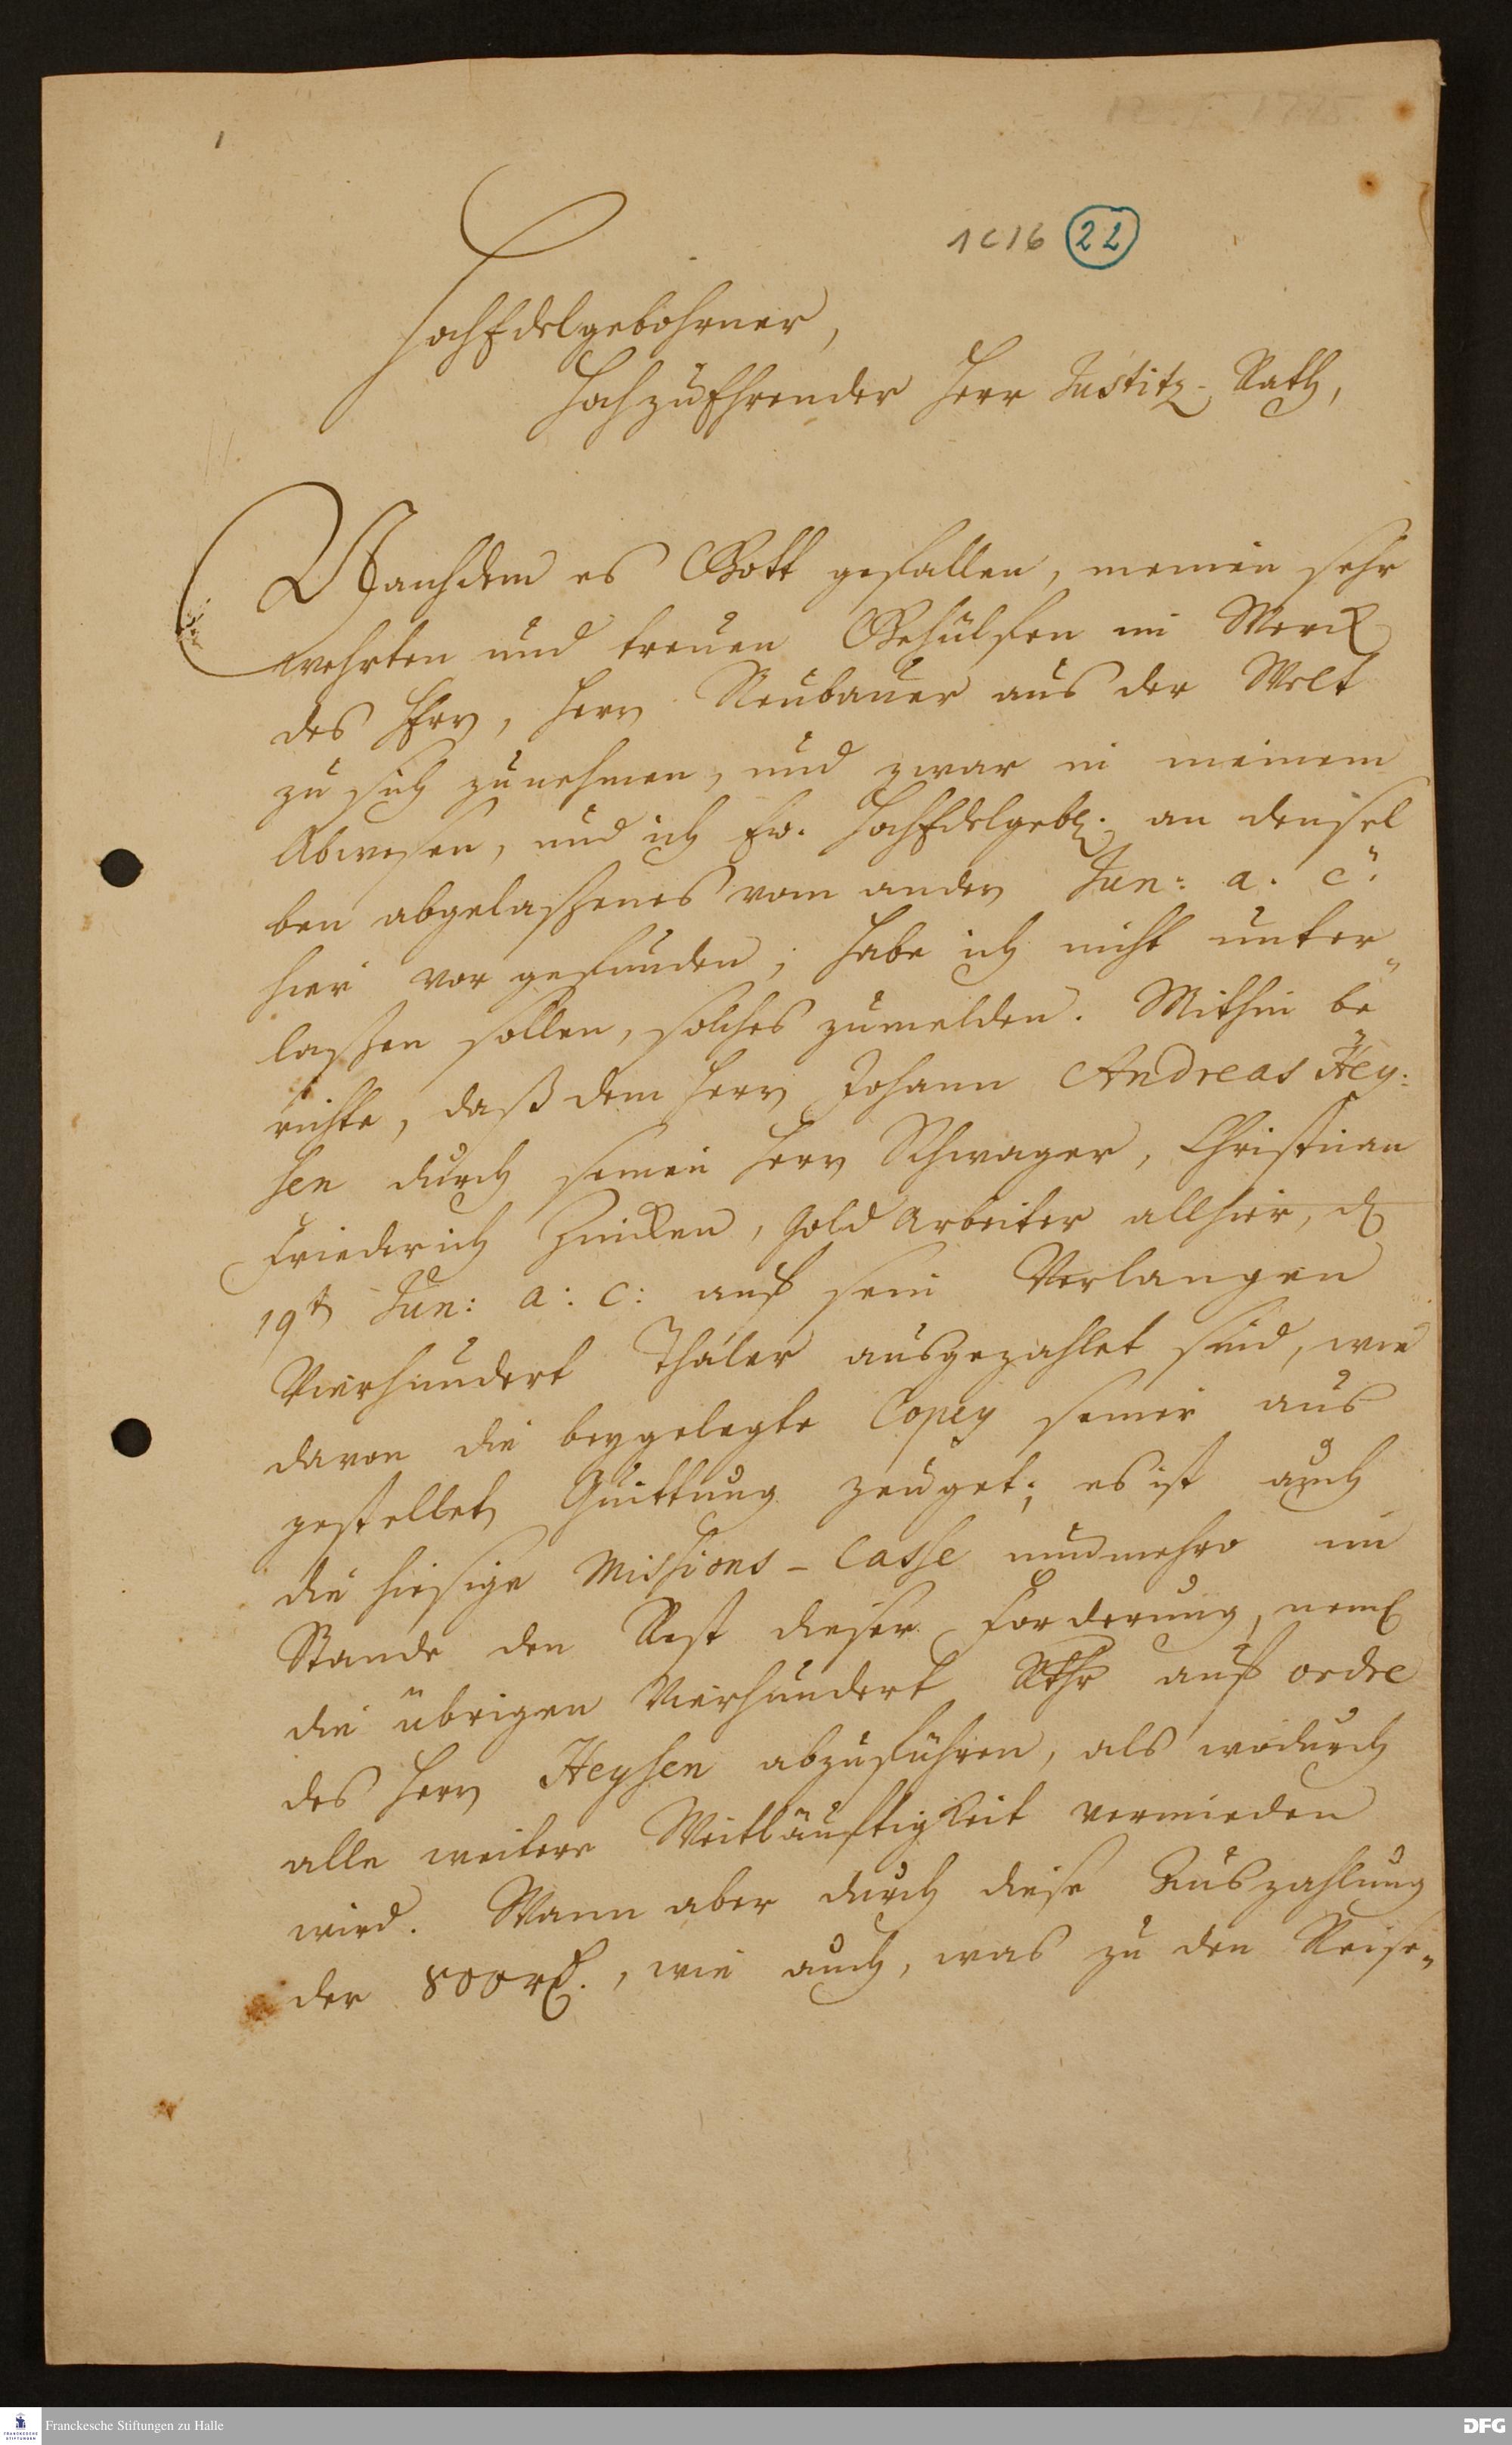 1
1C16 22
HochEdelgebohrner,
Hochzu Ehrender Herr Justitz-Rath,
Nachdem es Gott gefallen, meinen sehr
wehrten und treuen Gehülfen im Werck
des HErrn, Herrn Neubauer aus der Welt
zu sich zunehmen, und zwar in meinem
Abwesen, und ich Ew. HochEdelgeb. an densel
ben abgelaßenes vom andern Jun: a. c.
hier vor gefunden; habe ich nicht unter„
laßen sollen, solches zumelden. Mithin be
richte, daß dem Herrn Johann Andreas Hey:
sen durch seinen Herrn Schwager, Christian
Friederich Zincken, Gold Arbeiter allhier, d.
19t Jun: a: c: auf sein Verlangen
Vierhundert Thaler ausgezahlet sind, wie
davon die beygelegte Copey seiner aus
gestellten Quittung zeuget; es ist auch
die hiesige Missions-Casse nunmehro im
Stande den Rest dieser Forderung, neml.
die übrigen Vierhundert Rthr auf ordre
des Herrn Heysen abzuführen, als wodurch
alle weitere Weitläuftigkeit vermieden
wird. Wann aber durch diese Auszahlung
der 800 rt., wie auch, was zu den Reise„
Franckesche Stiftungen zu Halle
DFG